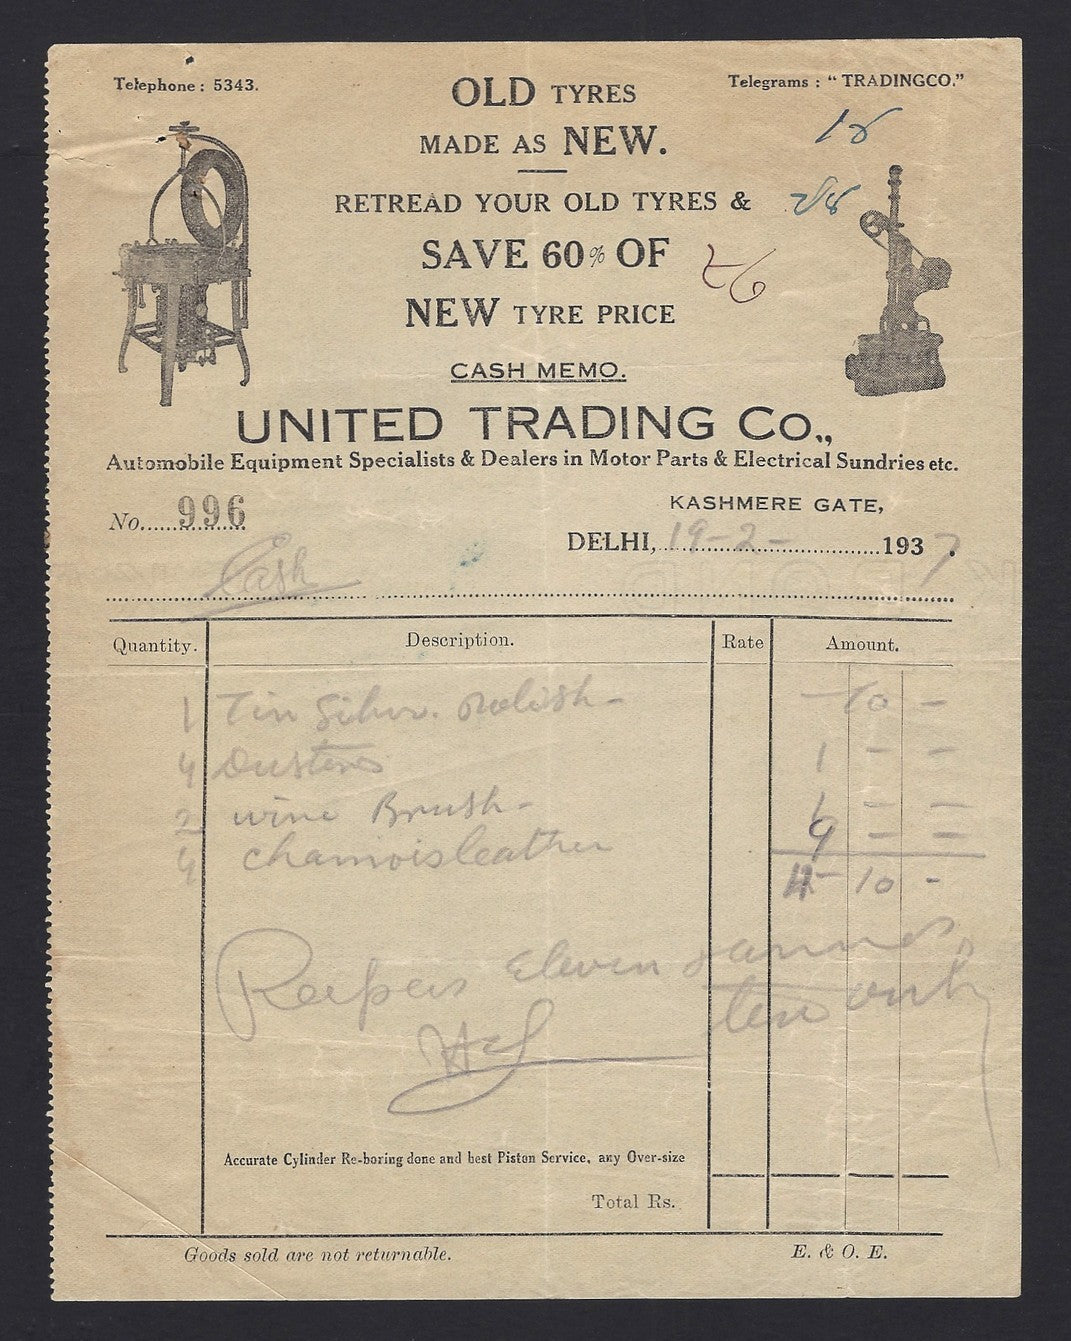 Telephone : 5343.
Telegrams : “ TRADINGCO.”
OLD TYRES
MADE AS NEW.
RETREAD YOUR OLD TYRES &
SAVE 60% OF
NEW TYRE PRICE
CASH MEMO.
UNITED TRADING Co.,
Automobile Equipment Specialists & Dealers in Motor Parts & Electrical Sundries etc.
KASHMERE GATE,
No......996
DELHI, 19-2- 1937.
Cash
Quantity. Description. Rate Amount.
1 Tin Silver Polish - 10 -
4 Dusters 1 - -
2 wire Brush - 1 - -
4 chamois leather 9 - -
11 - 10 -
Reepees Eleven & annas
ten only
Accurate Cylinder Re-boring done and best Piston Service, any Over-size
Total Rs.
Goods sold are not returnable.
E. & O. E.